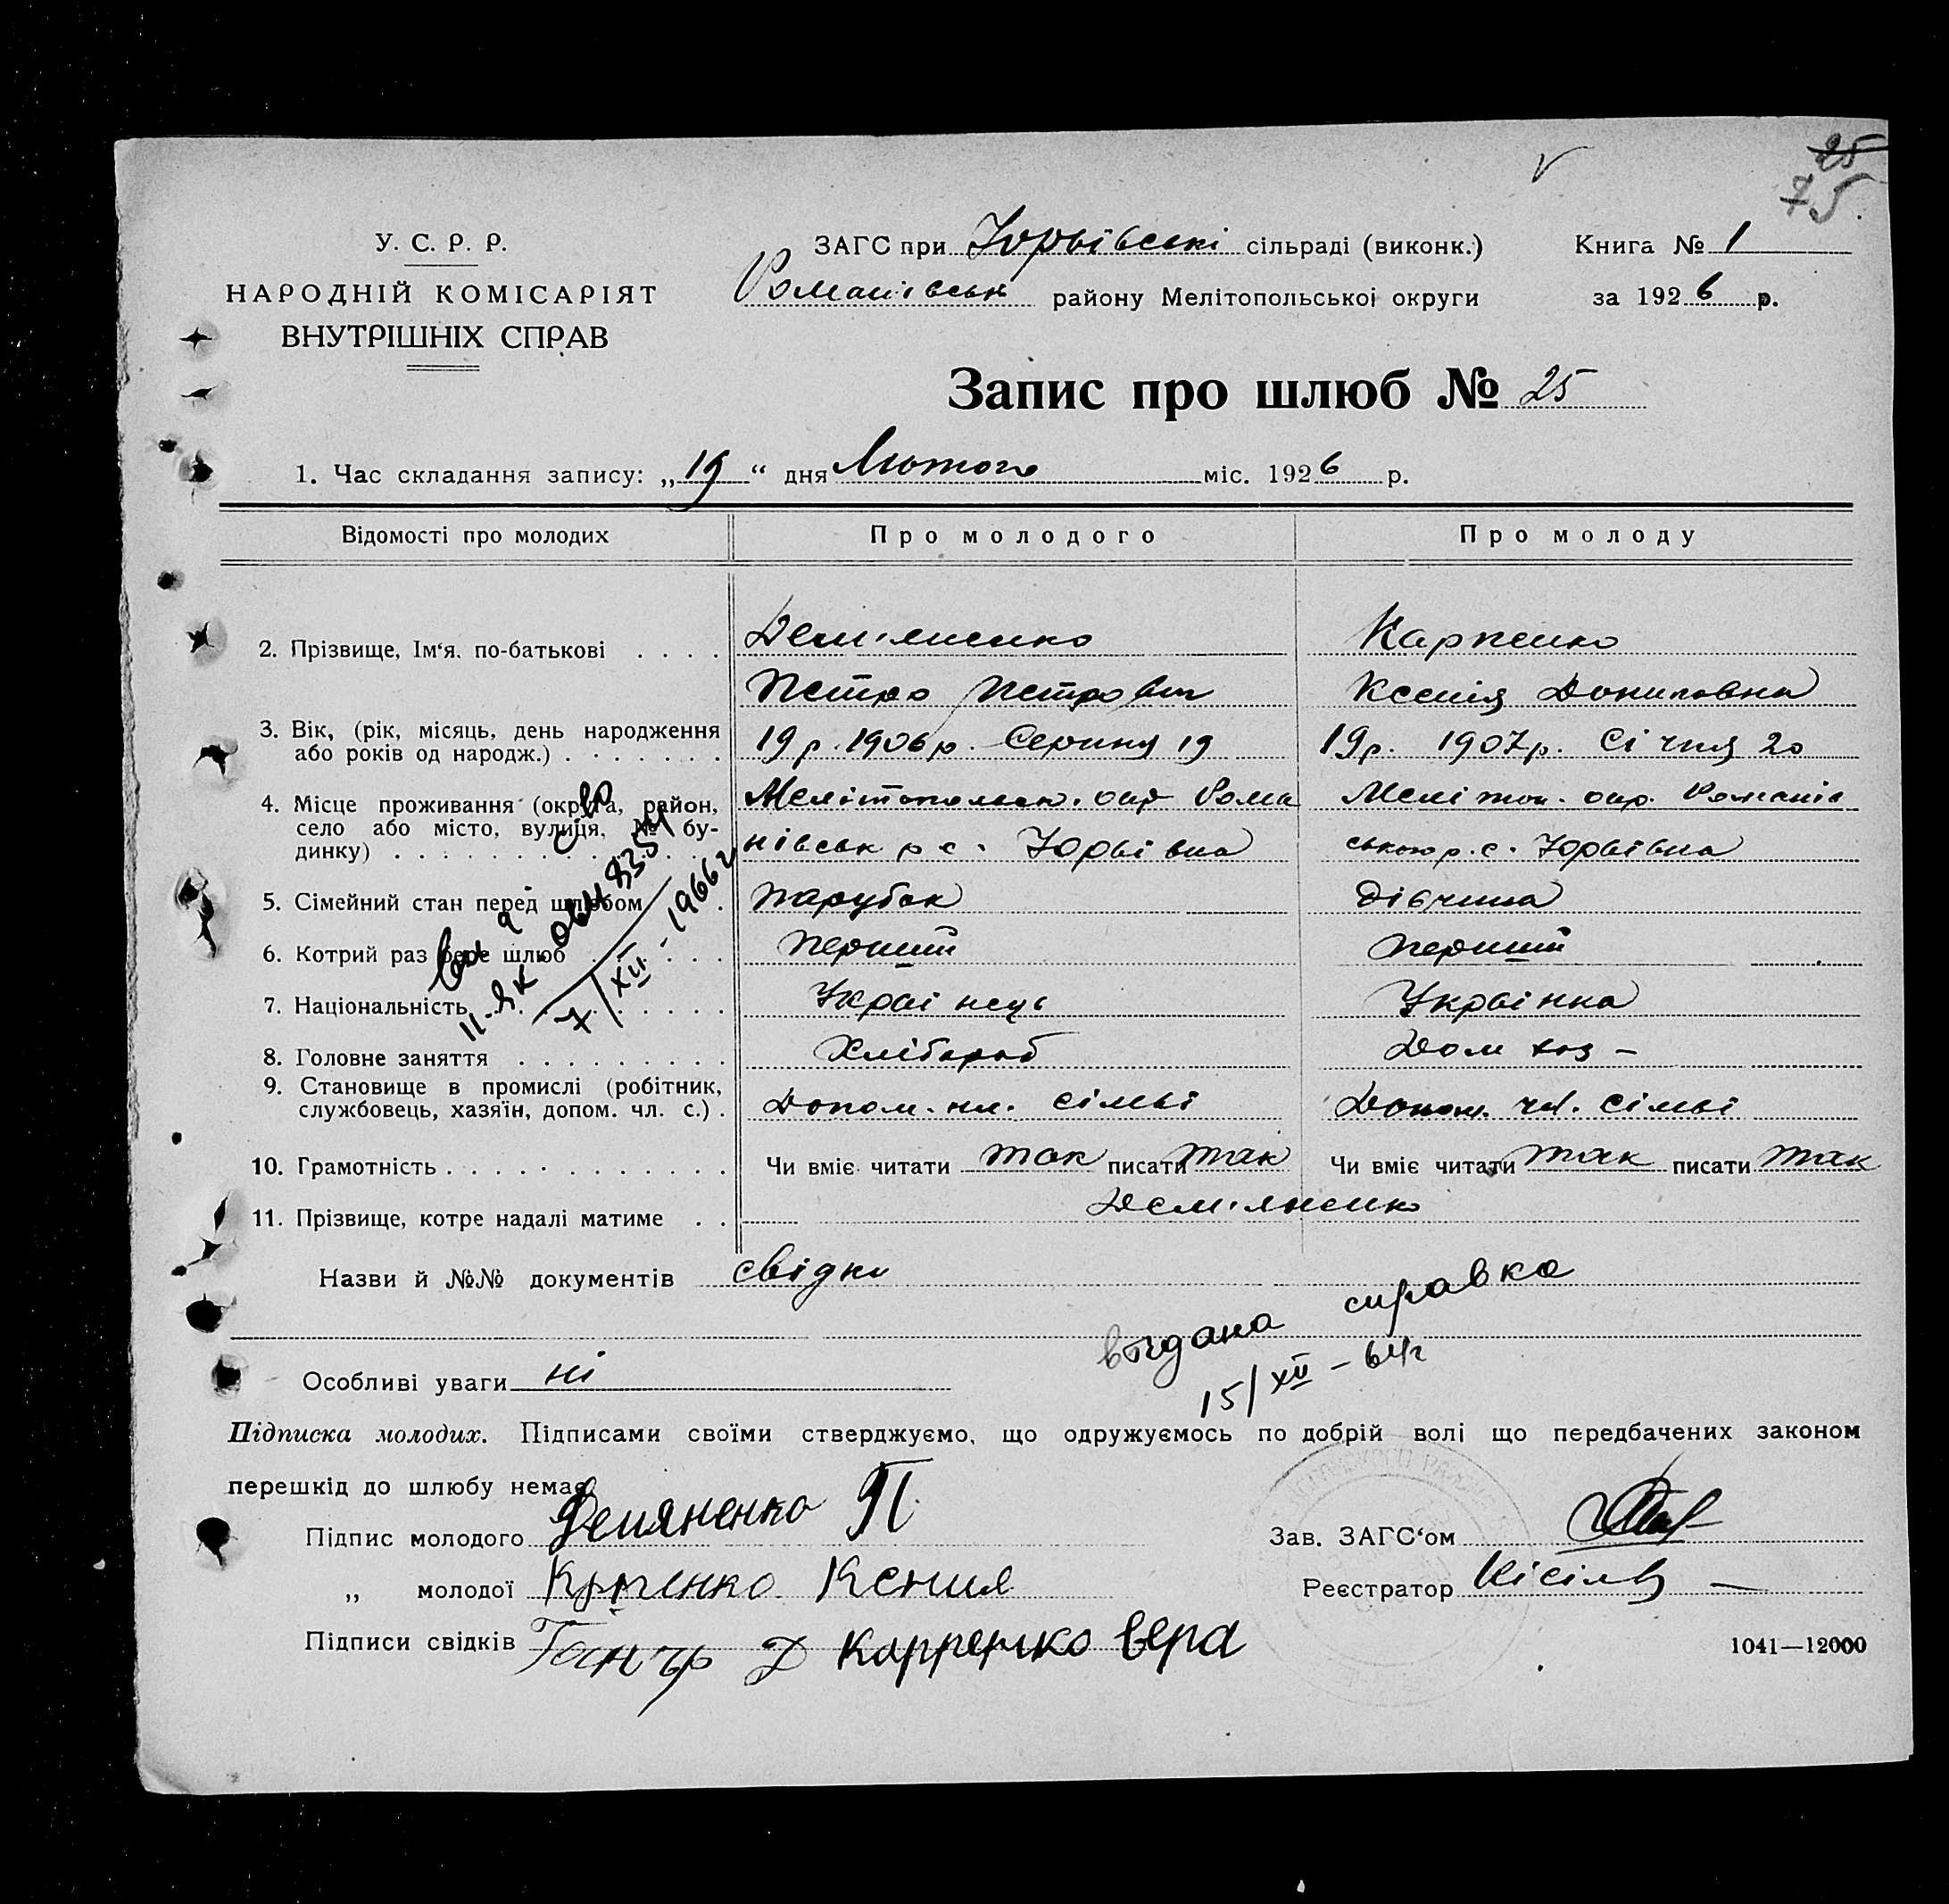 25
75.
У. С. Р. Р.
НАРОДНІЙ КОМІСАРІЯТ
ВНУТРІШНІХ СПРАВ
ЗАГС при Юрьівські сільраді (виконк.) Книга № 1
Романівськ району Мелітопольської округи за 1926 р.
Запис про шлюб № 25
1. Час складання запису: „19“ дня Лютого міс. 1926 р.
Відомості про молодих Про молодого Про молоду
2. Прізвище, Ім‘я, по-батькові . . . . Дем'яненко Карпенко
Петро Петрович Ксенія Даниловна
3. Вік, (рік, місяць, день народження
або років од народж.) . . . . . . . 19 р. 1906 р. Серпня 19 19р. 1907р. Січня 20
4. Місце проживання (округа, район, Мелітопольськ. окр Рома Мелітоп. окр. Романів
село або місто, вулиця, № бу-
динку) . . . . нівськ р с. Юрьівка ською р. с. Юрьівка
5. Сімейний стан перед шлюбом . парубок Дівчина
6. Котрий раз бере шлюб . . . . перший перший
7. Національність . . . . . . Украінець Украінка
8. Головне заняття . . . . . . . . . Хлібороб Дом хоз –
9. Становище в промислі (робітник,
службовець, хазяїн, допом. чл. с.) . Допом. чл. сімьі Допом. чл. сімьі
10. Грамотність . . . . . . . . . . . . Чи вміє читати так писати так Чи вміє читати так писати так
11. Прізвище, котре надалі матиме . . Дем'яненко
7/XII-1966 г
Назви й №№ документів свідки
выдана справка
15/XII – 64г
Особливі уваги ні
Підписка молодих. Підписами своїми стверджуємо, що одружуємось по добрій волі що передбачених законом
перешкід до шлюбу немає.
Підпис молодого Демяненко П. Зав. ЗАГС‘ом
„ молодої Крпенко Ксения Реєстратор Кісіль
Підписи свідків Ганчр Д Карренко Вера
1041—12000